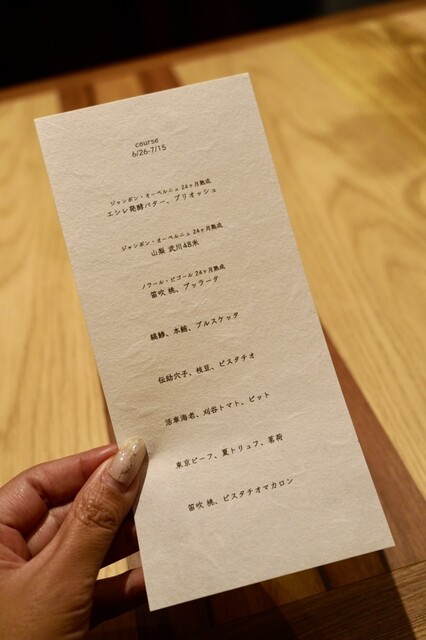 course
6/26-7/15
ジャンボン・オーベルニュ 24ヶ月熟成
エシレ発酵バター、ブリオッシュ
ジャンボン・オーベルニュ 24ヶ月熟成
山梨 武川48米
ノワール・ビゴール 24ヶ月熟成
笛吹 桃、ブッラータ
縞鯵、本鮪、ブルスケッタ
伝助穴子、枝豆、ピスタチオ
活車海老、刈谷トマト、ピット
東京ビーフ、夏トリュフ、茗荷
笛吹 桃、ピスタチオマカロン